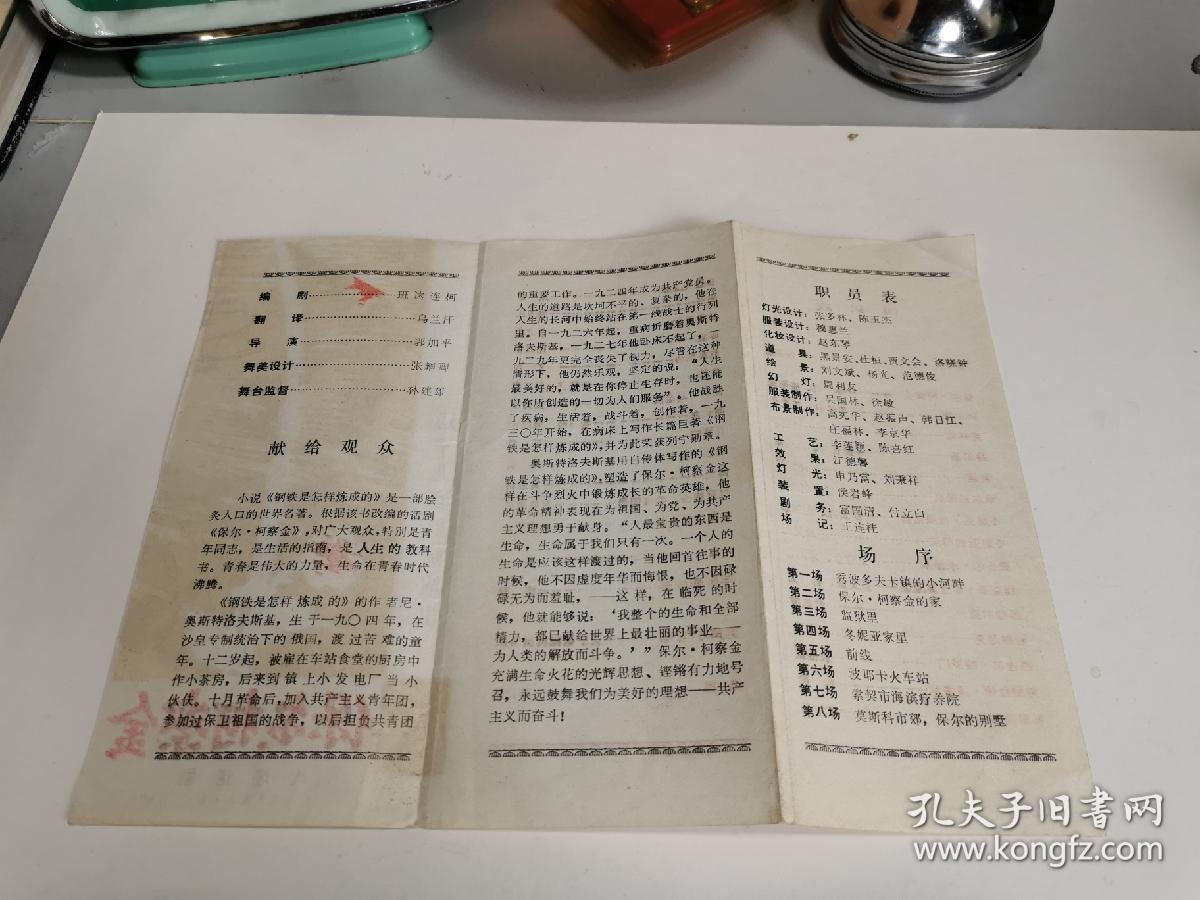 编 剧……………班达连柯
翻 译……………乌兰汗
导 演……………郭加平
舞美设计……………张
舞台监督……………孙建
献给观众
小说《钢铁是怎样炼成的》是一部脍
炙人口的世界名著。根据该书改编的话剧
《保尔·柯察金》，对广大观众，特别是青
年同志，是生活的指南，是人生的教科
书。青春是伟大的力量，生命在青春时代
沸腾。
《钢铁是怎样炼成的》的作者尼·
奥斯特洛夫斯基，生于一九〇四年，在
沙皇专制统治下的俄国，渡过苦难的童
年。十二岁起，被雇在车站食堂的厨房中
作小茶房，后来到镇上小发电厂当小
伙伕。十月革命后，加入共产主义青年团，
参加过保卫祖国的战争，以后担负共青团
的重要工作。一九二四年成为共产党员。
人生的道路是坎坷不平的、复杂的，他在
人生的长河中始终站在第一线战士的行列
里。自一九二六年起，重病折磨着奥斯特
洛夫斯基，一九二七年他卧床不起了，一
九二九年更完全丧失了视力，尽管在这种
情形下，他仍然乐观，坚定的说：“人生
最美好的，就是在你停止生存时，也还能
以你所创造的一切为人们服务”。他战胜
了疾病，生活着，战斗着，创作着，一九
三〇年开始，在病床上写作长篇巨著《钢
铁是怎样炼成的》，并为此荣获列宁勋章。
奥斯特洛夫斯基用自传体写作的《钢
铁是怎样炼成的》，塑造了保尔·柯察金这
样在斗争烈火中锻炼成长的革命英雄，他
的革命精神表现在为祖国、为党、为共产
主义理想勇于献身。“人最宝贵的东西是
生命，生命属于我们只有一次。一个人的
生命是应该这样渡过的，当他回首往事的
时候，他不因虚度年华而悔恨，也不因碌
碌无为而羞耻，——这样，在临死的时
候，他就能够说：‘我整个的生命和全部
精力，都已献给世界上最壮丽的事业——
为人类的解放而斗争。’”保尔·柯察金
充满生命火花的光辉思想、铿锵有力地号
召，永远鼓舞我们为美好的理想——共产
主义而奋斗！
职员表
灯光设计：张多林、陈玉杰
服装设计：穆惠兰
化妆设计：赵东琴
道 具：黑景安、杜桓、贾文会、
绘 景：刘文斌、杨光、范德俊
幻 灯：晁利友
服装制作：吴国林、徐敏
布景制作：高宪华、赵振声、韩日江、
庄福林、李京华
工 艺：李莲德、陈喜红
效 果：汀德馨
灯 光：申乃富、刘秉祥
装 置：侯岩峰
剧 务：富四清、台立白
场 记：王连柱
场序
第一场 舍波多夫卡镇的小河畔
第二场 保尔·柯察金的家
第三场 监狱里
第四场 冬妮亚家里
第五场 前线
第六场 波耶卡火车站
第七场 索契市海滨疗养院
第八场 莫斯科市郊，保尔的别墅
孔夫子旧书网
www.kongfz.com